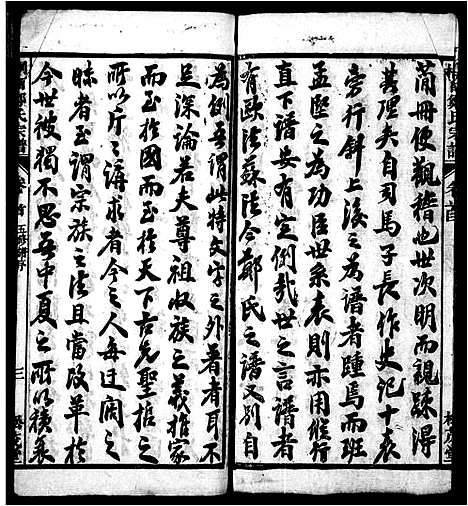 簡冊便觀稽也世次明而親疎得
其理矣自司馬子長作史記十表
旁行斜上後之為譜者踵焉而班
孟堅之為功臣世系表則亦用縱行
直下譜安有定例哉世之言譜者
有歐法蘇法今鄭氏之譜又別自
為例吾謂此特文字之外著者耳不
足深論若夫尊祖收族之義推家
而至於國而至於天下古先聖哲之
所以斤之講求者今之人每迂闊之
昧者至謂宗族之法且當改革於
今世彼獨不思吾中夏之所以積義
鄭氏宗譜
卷首
三